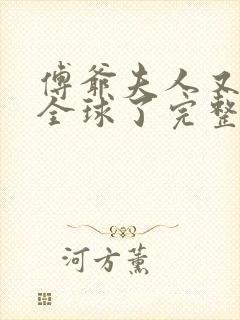 傅爷夫人又
全球了完整
河方薰